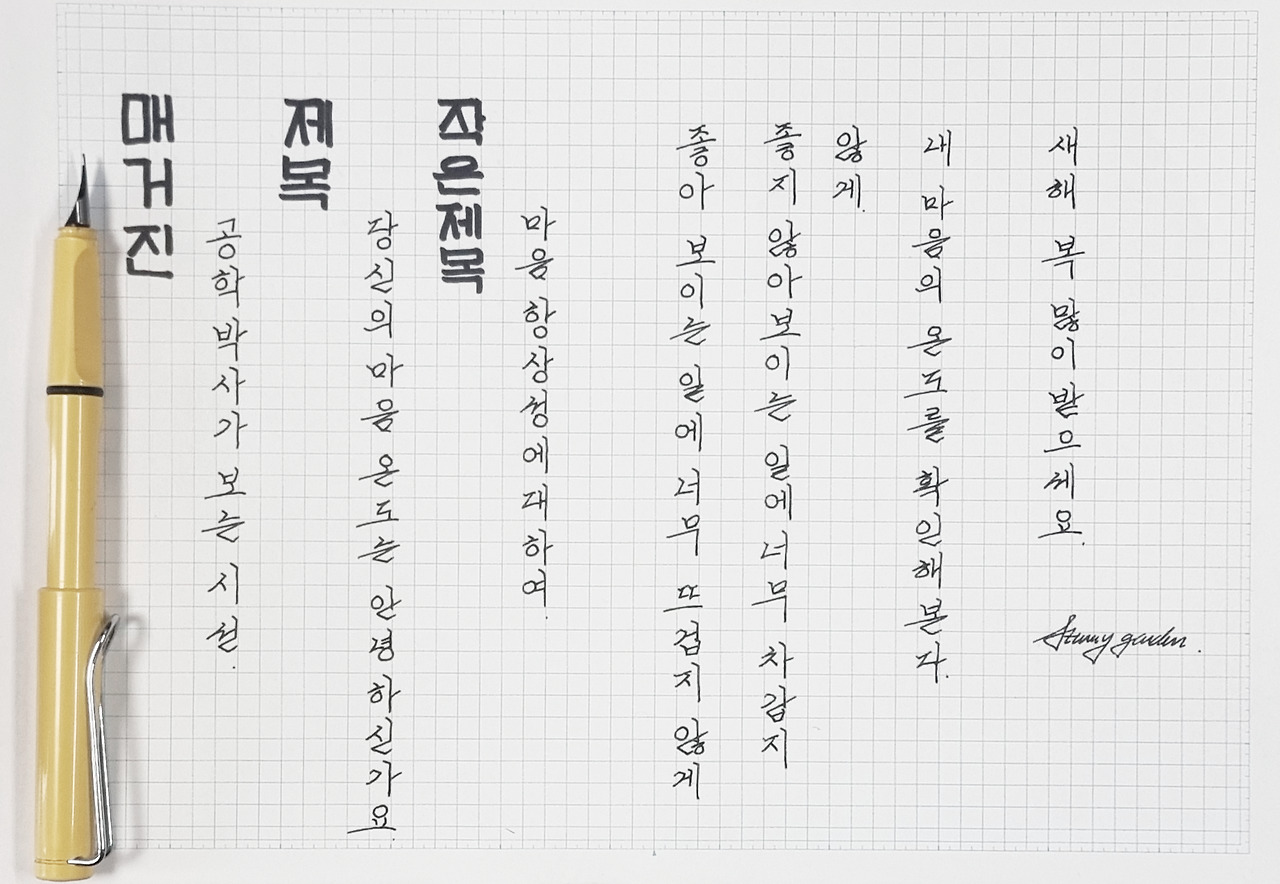 매거진
공학박사가 보는 시선.
제목
당신의 마음 온도는 안녕하신가요.
작은제목
마음 항상성에 대하여.
좋아 보이는 일에 너무 뜨겁지 않게
좋지 않아 보이는 일에 너무 차갑지
않게.
내 마음의 온도를 확인해 본다.
새해 복 많이 받으세요.